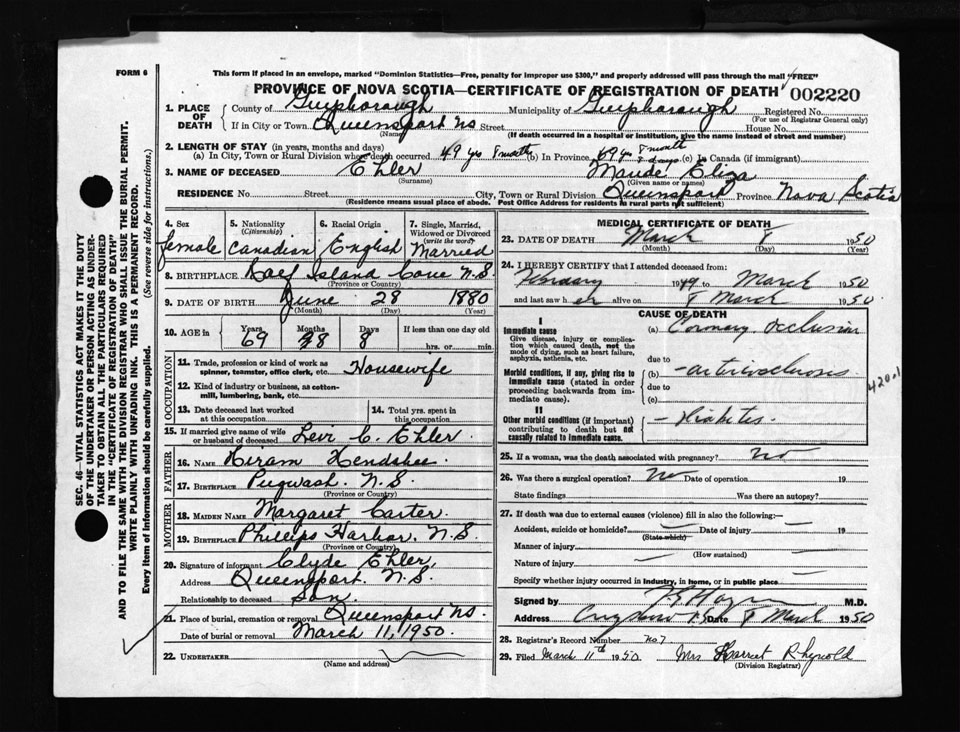 FORM 6
This form if placed in an envelope, marked "Dominion Statistics—Free, penalty for improper use $300," and properly addressed will pass through the mail "FREE"
PROVINCE OF NOVA SCOTIA—CERTIFICATE OF REGISTRATION OF DEATH 002220
1. PLACE OF DEATH County of Guysborough Municipality of Guysborough Registered No.
(For use of Registrar General only)
If in City or Town Queensport NS Street House No.
(Name) (If death occurred in a hospital or institution, give the name instead of street and number)
2. LENGTH OF STAY (in years, months and days)
(a) In City, Town or Rural Division where death occurred 49 yrs 8 month (b) In Province 69 yrs 8 month 8 days (c) In Canada (if immigrant)
3. NAME OF DECEASED Ehler Maude Eliza
(Surname) (Given name or names)
RESIDENCE No. Street City, Town or Rural Division Queensport Province Nova Scotia
(Residence means usual place of abode. Post Office Address for residents in rural parts not sufficient)
4. Sex female
5. Nationality (Citizenship) Canadian
6. Racial Origin English
7. Single, Married, Widowed or Divorced (write the word) Married
8. BIRTHPLACE Half Island Cove N.S.
(Province or Country)
9. DATE OF BIRTH June 28 1880
(Month) (Day) (Year)
10. AGE in Years 69 Months 8 Days 8 If less than one day old hrs. or min.
OCCUPATION
11. Trade, profession or kind of work as spinner, teamster, office clerk, etc. Housewife
12. Kind of industry or business, as cotton-mill, lumbering, bank, etc.
13. Date deceased last worked at this occupation
14. Total yrs. spent in this occupation
15. If married give name of wife or husband of deceased Levi C. Ehler.
FATHER
16. NAME Hiram Hendsbee.
17. BIRTHPLACE Pugwash. N.S.
(Province or Country)
MOTHER
18. MAIDEN NAME Margaret Carter.
19. BIRTHPLACE Phillips Harbor, N.S.
(Province or Country)
20. Signature of informant Clyde Ehler,
Address Queensport. N.S.
Relationship to deceased Son.
21. Place of burial, cremation or removal Queensport NS.
Date of burial or removal March 11, 1950.
22. UNDERTAKER
(Name and address)
MEDICAL CERTIFICATE OF DEATH
23. DATE OF DEATH March 8 1950
(Month) (Day) (Year)
24. I HEREBY CERTIFY that I attended deceased from:
1949 to March 1950
and last saw her alive on 8 March 1950
CAUSE OF DEATH
I
Immediate cause
Give disease, injury or complication which caused death, not the mode of dying, such as heart failure, asphyxia, asthenia, etc.
(a) Coronary Occlusion
due to
Morbid conditions, if any, giving rise to immediate cause (stated in order proceeding backwards from immediate cause).
(b) arteriosclerosis
due to
(c)
420.1
II
Other morbid conditions (if important) contributing to death but not causally related to immediate cause.
Diabetes
25. If a woman, was the death associated with pregnancy? no
26. Was there a surgical operation? No Date of operation 19
State findings Was there an autopsy?
27. If death was due to external causes (violence) fill in also the following:—
Accident, suicide or homicide? Date of injury 19
(State which)
Manner of injury
(How sustained)
Nature of injury
Specify whether injury occurred in industry, in home, or in public place
Signed by M.D.
Address Date 8 March 1950
28. Registrar's Record Number no 7
29. Filed March 11th 1950 Mrs Harriet Rhynold
(Division Registrar)
SEC. 46—VITAL STATISTICS ACT MAKES IT THE DUTY
OF THE UNDERTAKER OR PERSON ACTING AS UNDER-
TAKER TO OBTAIN ALL THE PARTICULARS REQUIRED
IN THE "CERTIFICATE OF REGISTRATION OF DEATH"
AND TO FILE THE SAME WITH THE DIVISION REGISTRAR WHO SHALL ISSUE THE BURIAL PERMIT.
WRITE PLAINLY WITH UNFADING INK. THIS IS A PERMANENT RECORD.
Every item of information should be carefully supplied. (See reverse side for instructions.)